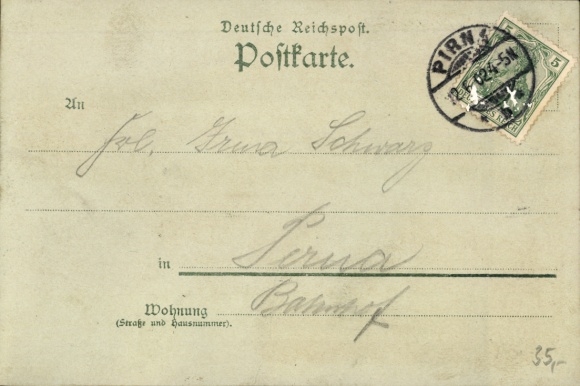 Deutsche Reichspost.
Postkarte.
PIRNA
12.6.02.4-5N.
5
5
An
Frl. Irma Schwarz
in Pirna
Wohnung Bahnhof
(Straße und Hausnummer).
35,-